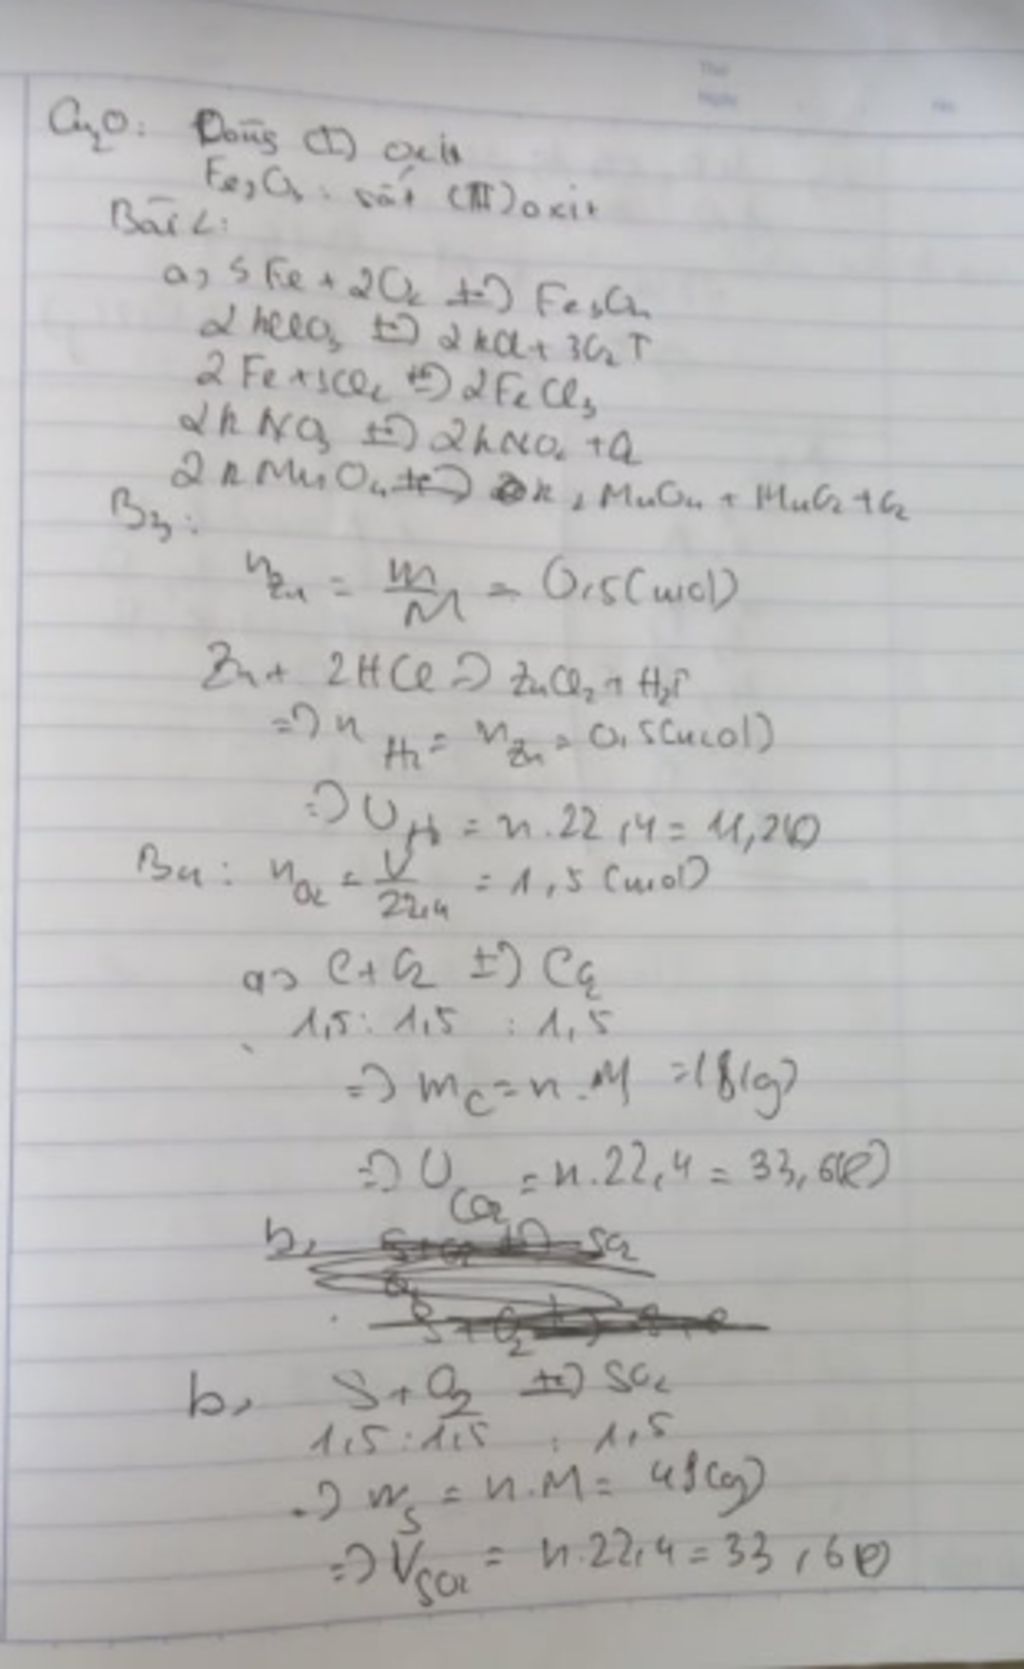 Cu2O: Đồng (I) oxit
Fe2O3: sắt (III) oxit
Bài 2:
a, 3Fe + 2O2 t°→ Fe3O4
2KClO3 t°→ 2KCl + 3O2↑
2Fe + 3Cl2 t°→ 2FeCl3
2KNO3 t°→ 2KNO2 + O2
2KMnO4 t°→ K2MnO4 + MnO2 + O2
B3:
nZn = m/M = 0,5 (mol)
Zn + 2HCl → ZnCl2 + H2↑
=> nH2 = nZn = 0,5 (mol)
=> VH2 = n.22,4 = 11,2(l)
B4: nO2 = V/22,4 = 1,5 (mol)
a, C + O2 t°→ CO2
1,5 : 1,5 : 1,5
=> mC = n.M = 18(g)
=> VCO2 = n.22,4 = 33,6(l)
b, S + O2 t°→ SO2
1,5 : 1,5 : 1,5
=> mS = n.M = 48(g)
=> VSO2 = n.22,4 = 33,6(l)